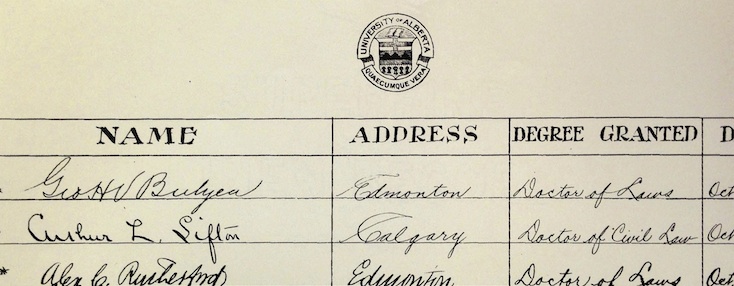 UNIVERSITY OF ALBERTA
QUAECUMQUE VERA
NAME ADDRESS DEGREE GRANTED D
Geo H V Bulyea Edmonton Doctor of Laws Oct
Arthur L. Sifton Calgary Doctor of Civil Law Oct
* Alex C. Rutherford Edmonton Doctor of Laws Oct